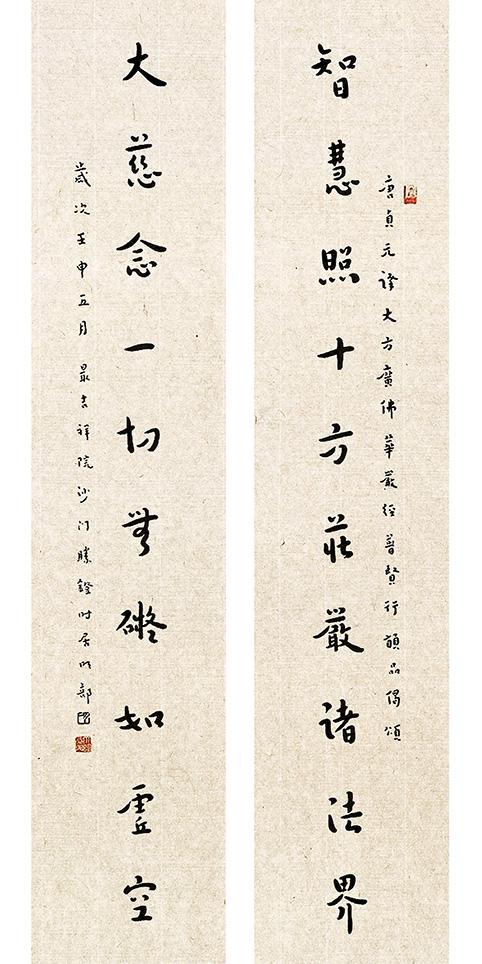 唐貞元譯大方廣佛華嚴經普賢行願品偈頌
智慧照十方莊嚴諸法界
大慈念一切無礙如虛空
歲次壬申五月最吉祥院沙門勝鐙時居